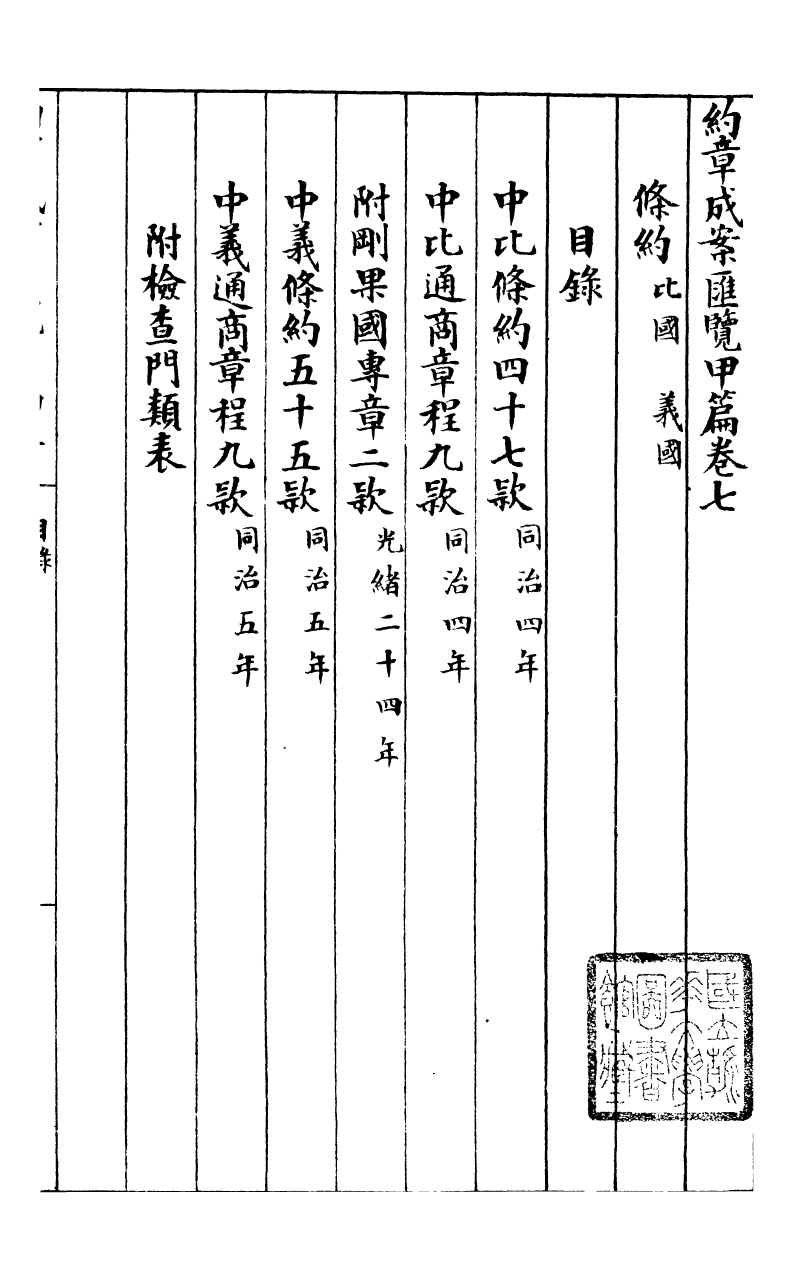 約章成案匯覽甲篇卷七
條約 比國 義國
目錄
中比條約四十七款 同治四年
中比通商章程九款 同治四年
附剛果國專章二款 光緒二十四年
中義條約五十五款 同治五年
中義通商章程九款 同治五年
附檢查門類表
目錄
國立
大學
圖書
館藏